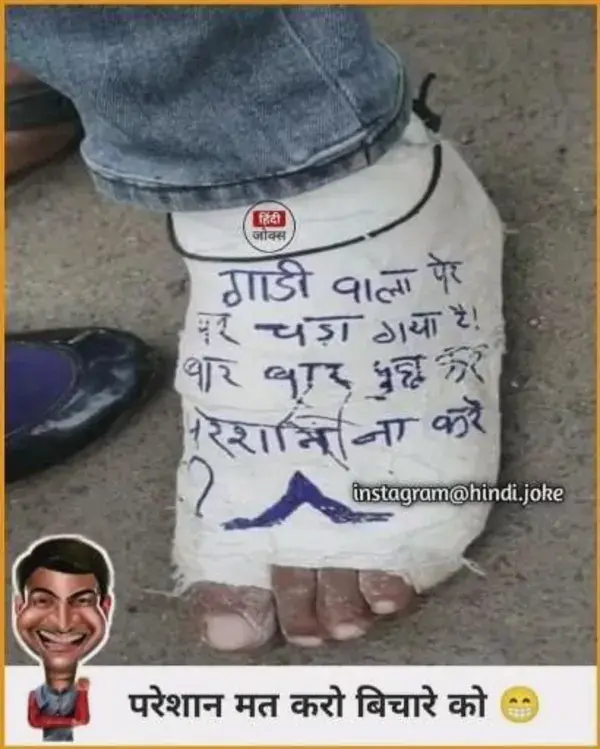 हिंदी
जोक्स
गाडी वाला पेर
पर चड़ा गया है!
बार बार पुछ कर
परेशान ना करे
?
instagram@hindi.joke
परेशान मत करो बिचारे को 😁